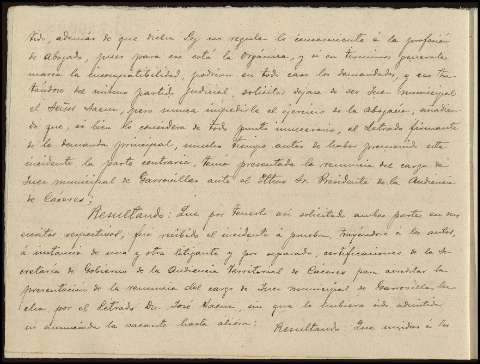 tido, además de que dicha Ley no regula lo concerniente á la profesión
de Abogado, pues para eso está la Orgánica, y si en términos generales
marca la incompatibilidad, podrían en todo caso los demandados, y
del mismo partido judicial, solicitar dejara de ser Juez municipal
el Señor pero nunca impedirle el ejercicio de la Abogacía, añadien-
do que, si bien lo considera de todo punto innecesario, el Letrado firmante
de la demanda principal, mucho tiempo antes de haber promovido este
incidente la parte contraria, tenía presentada la renuncia del cargo de
Juez municipal de Garrovillas ante el Iltmo Sr. Presidente de la Audiencia
de Cáceres;
Resultando: Que por haberlo así solicitado ambas partes en sus
escritos respectivos, fué recibido el incidente á prueba, trayéndose á los autos,
á instancia de uno y otro litigante y por separado, certificaciones de la Se-
cretaría de Gobierno de la Audiencia Territorial de Cáceres para acreditar la
presentación de la renuncia del cargo de Juez municipal de Garrovillas, he-
cha por el Letrado Dn. José sin que le hubiera sido admitida
ni anunciada la vacante hasta ahora: Resultando: Que unidas á los